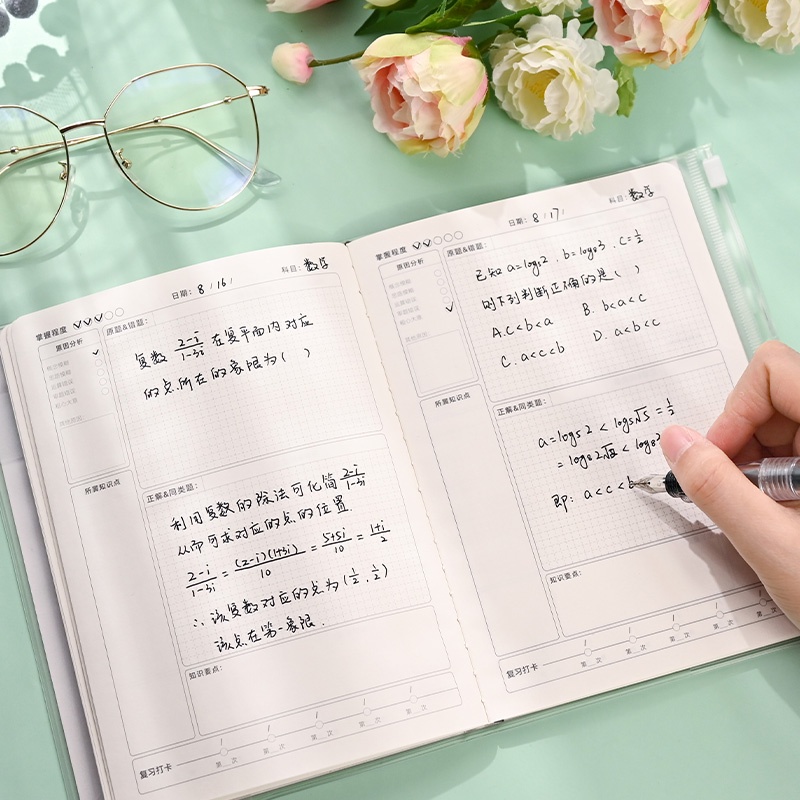 掌握程度
日期: 8 / 16 /
科目: 数学
原因分析
原题&错题:
复数 (2-i)/(1-3i) 在复平面内对应
的点所在的象限为( )
所属知识点
正解&同类题:
利用复数的除法可化简 (2-i)/(1-3i)
从而可求对应的点的位置.
(2-i)/(1-3i) = (2-i)(1+3i)/10 = (5+5i)/10 = (1+i)/2
∴ 该复数对应的点为(1/2, 1/2)
该点在第一象限.
知识要点:
复习打卡
第__次 第__次 第__次 第__次 第__次
掌握程度
日期: 8 / 17 /
科目: 数学
原因分析
原题&错题:
已知 a=log₅2 , b=log₈3 , C=1/2
则下列判断正确的是( )
A. c<b<a B. b<a<c
C. a<c<b D. a<b<c
所属知识点
正解&同类题:
a=log₅2 < log₅√5 = 1/2
= log₈2√2 < log₈3
即: a<c<b
知识要点:
复习打卡
第__次 第__次 第__次 第__次